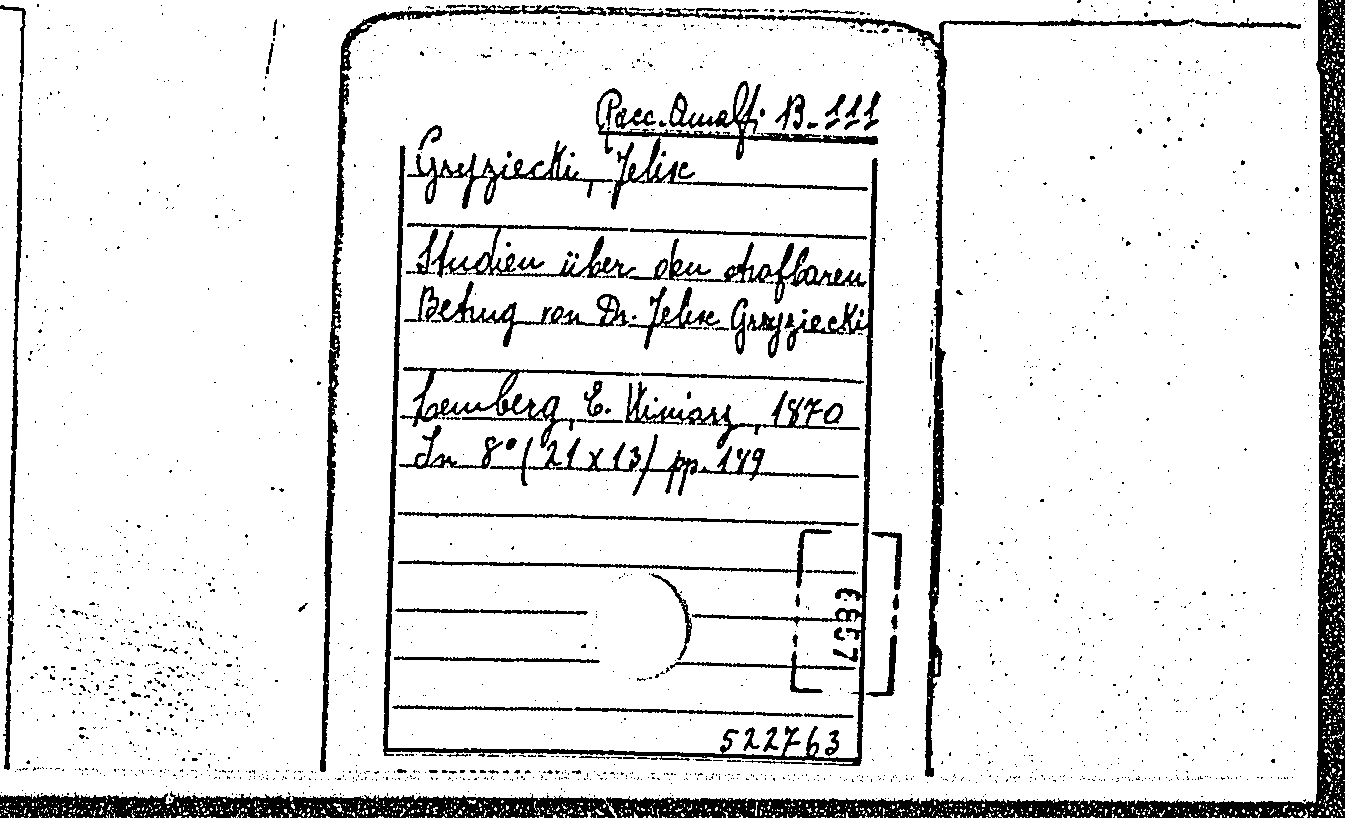 Racc. Amalf. B-111
Gryziecki, Felix
Studien über den strafbaren
Betrug von Dr. Felix Gryziecki
Lemberg, E. Winiarz, 1870
In 8° (21 x 13) pp. 149
522763